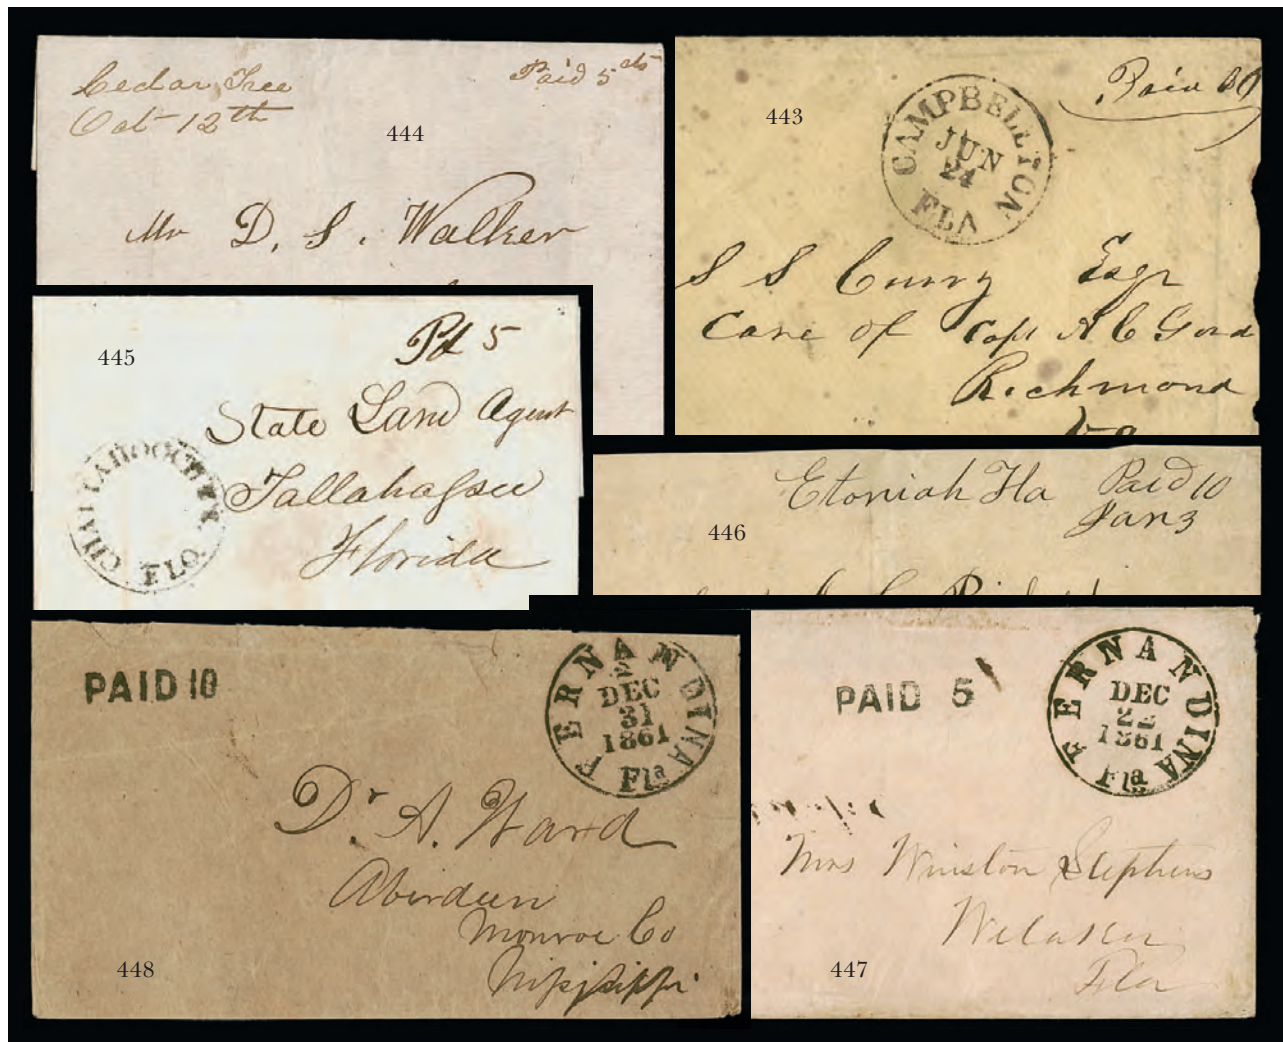 Cedar Tree
Oct 12th
Paid 5 cts
444
Mr D. S. Walker
443
CAMPBELLTON
JUN
24
FLA
Paid
S S Curry Esqr
Care of Capt A C Gord
Richmond
Va
445
Pd 5
State Land Agent
Tallahassee
Florida
CHATTAHOOCHEE
FLO
446
Etoniah Fla Paid 10
Jan 3
PAID 10
FERNANDINA
2
DEC
31
1861
Fla
Dr. A. Ward
Aberdeen
Monroe Co
Mississippi
448
PAID 5
FERNANDINA
DEC
22
1861
Fla
Mrs Winston Stephens
Welaka
Fla
447